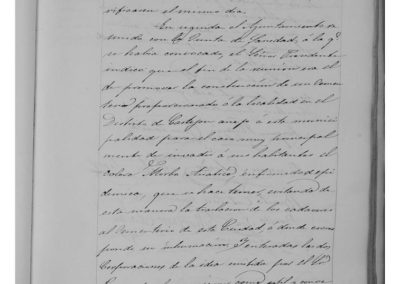 rificasen el mismo dia.
En seguida el Ayuntamiento re
unido con la Junta de Sanidad, á la q.
se habia convocado, el Señor Presidente
indicó que el fin de la reunion era el
de promover la construccion de un Cemen
terio proporcionado á la localidad en el
Distrito de Castejon anejo á este munici
palidad para el caso muy principal
mente de invadir á sus habitantes el
colera Morbo Asiatico, enfermedad epi
demica, que se hace temer, evitando de
esta manera la traslacion de los cadaveres
al Cementerio de esta Ciudad á donde corres
ponde su inhumacion. Y enteradas las dos
Corporaciones de la idea emitida por el Sr.
como util y